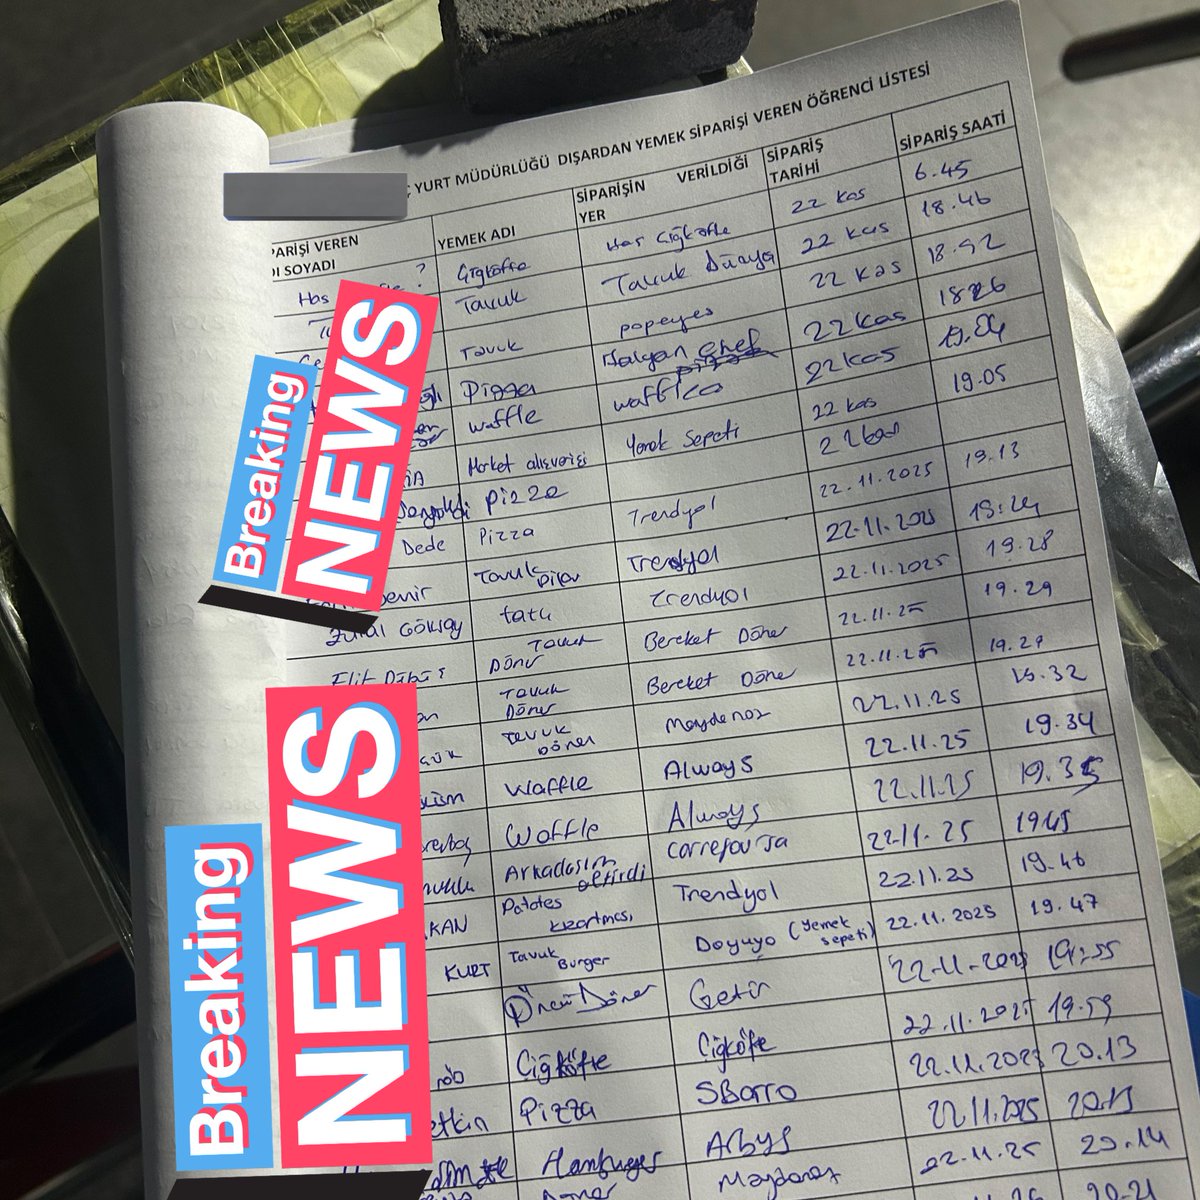 Ç YURT MÜDÜRLÜĞÜ DIŞARDAN YEMEK SİPARİŞİ VEREN ÖĞRENCİ LİSTESİ
PARİŞİ VEREN
DI SOYADI
YEMEK ADI
SİPARİŞİN VERİLDİĞİ
YER
SİPARİŞ
TARİHİ
SİPARİŞ SAATİ
Has ? Çiğköfte Has Çiğköfte 22 kas 6.45
Tavuk Tavuk Dünya 22 kas 18.46
Tavuk popeyes 22 kas 18.52
Pizza chef 22 kas 1826
waffle 22 kas
Market alışverişi Yemek Sepeti 22 kas 19.05
Pizza
Dede Pizza Trendyol 22.11.2025 19.13
Tavuk Trendyol 22.11.2025
GÖKSOY Trendyol 22.11.2025 19.28
Elif Tavuk
Döner Bereket Döner 22.11.25 19.29
Tavuk
Döner Bereket Döner 22.11.25 19.27
Tavuk
Döner Maydonoz 22.11.25 19.32
Waffle Always 22.11.25 19.34
Waffle Always 22.11.25 19.35
Arkadaşım
getirdi Carrefoursa 22.11.25 1945
KAN Patates
kızartması Trendyol 22.11.25 19.46
KURT Tavuk
Burger Doyuyo (Yemek
sepeti) 22.11.2025 19.47
Öncü Döner Getir 22.11.2025 19:55
Çiğköfte Çiğköfte 22.11.2025 19.59
etkin Pizza SBarro 22.11.2025 20.13
Hamburger Arbys 22.11.2025 20.13
Döner Maydonoz 22.11.25 20.14
20.21
Breaking
NEWS
Breaking
NEWS